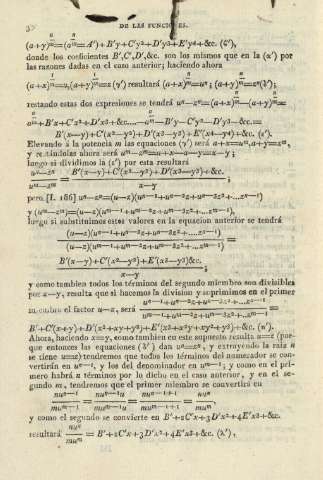 DE LAS FUNCIONES.
(a+y)^{n/m}=(a^{n/m}=A')+B'y+C'y²+D'y³+E'y⁴+&c. (ζ'),
donde los coeficientes B',C',D',&c. son los mismos que en la (α') por
las razones dadas en el caso anterior; haciendo ahora
(a+x)^{1/m}=u,(a+y)^{1/m}=z (γ') resultará (a+x)^{n/m}=uⁿ ; (a+y)^{n/m}=zⁿ(δ');
restando estas dos expresiones se tendrá uⁿ—zⁿ=(a+x)^{n/m}—(a+y)^{n/m}=
a^{n/m}+B'x+C'x²+D'x³+&c.....—a^{n/m}—B'y—C'y²—D'y³—&c.=
B'(x—y)+C'(x²—y²)+D'(x³—y³)+E'(x⁴—y⁴)+&c. (ε').
Elevando á la potencia m las equaciones (γ') será a+x=uᵐ,a+y=zᵐ,
y restándolas ahora será uᵐ—zᵐ=a+x—a—y=x—y ;
luego si dividimos la (ε') por esta resultará
(uⁿ—zⁿ)/(uᵐ—zᵐ) = (B'(x—y)+C'(x²—y²)+D'(x³—y³)+&c.)/(x—y) ;
pero [L. 186] uⁿ—zⁿ=(u—z)(uⁿ⁻¹+uⁿ⁻²z+uⁿ⁻³z²+...zⁿ⁻¹)
y (uᵐ—zᵐ)=(u—z)(uᵐ⁻¹+uᵐ⁻²z+uᵐ⁻³z²+...zᵐ⁻¹),
luego si substituimos estos valores en la equacion anterior se tendrá
((u—z)(uⁿ⁻¹+uⁿ⁻²z+uⁿ⁻³z²+....zⁿ⁻¹))/((u—z)(uᵐ⁻¹+uᵐ⁻²z+uᵐ⁻³z²+...zᵐ⁻¹)) =
(B'(x—y)+C'(x²—y²)+E'(x³—y³)&c.)/(x—y) ;
y como tambien todos los términos del segundo miembro son divisibles
por x—y, resulta que si hacemos la division y suprimimos en el primer
miembro el factor u—z, será (uⁿ⁻¹+uⁿ⁻²z+uⁿ⁻³z²+....zⁿ⁻¹)/(uᵐ⁻¹+uᵐ⁻²z+uᵐ⁻³z²+...zᵐ⁻¹) =
B'+C'(x+y)+D'(x²+xy+y²)+E'(x³+x²y+xy²+y³)+&c. (η').
Ahora, haciendo x=y, como tambien en este supuesto resulta u=z (por-
que entonces las equaciones (δ') dan uⁿ=zⁿ, y extrayendo la raiz n
se tiene u=z) tendremos que todos los términos del numerador se con-
vertirán en uⁿ⁻¹, y los del denominador en uᵐ⁻¹; y como en el pri-
mero habrá n términos por lo dicho en el caso anterior, y en el se-
gundo m, tendremos que el primer miembro se convertirá en
nuⁿ⁻¹/muᵐ⁻¹ = nuⁿ⁻¹u/muᵐ⁻¹u = nuⁿ⁻¹⁺¹/muᵐ⁻¹⁺¹ = nuⁿ/muᵐ,
y como el segundo se convierte en B'+2C'x+3D'x²+4E'x³+&c.
resultará nuⁿ/muᵐ = B'+2C'x+3D'x²+4E'x³+&c. (λ'),